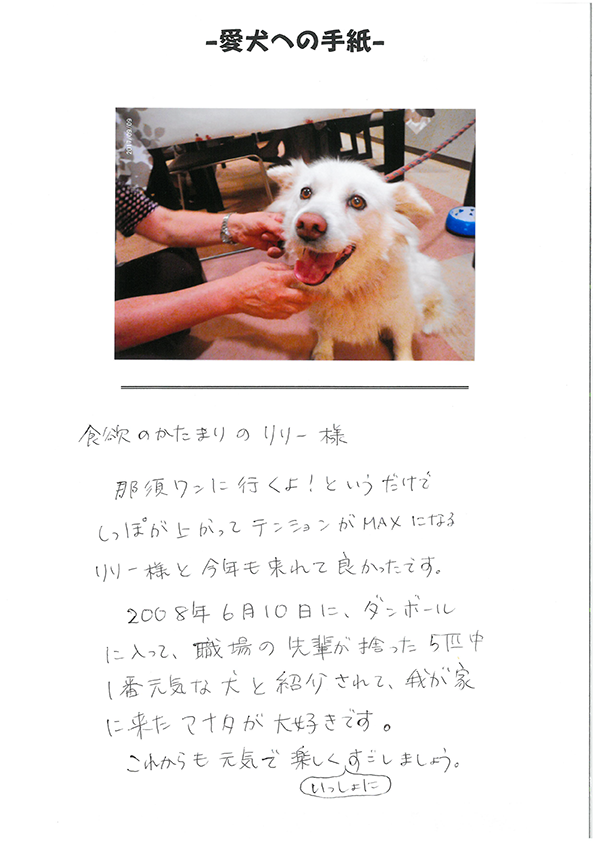 -愛犬への手紙-
2017/09/09
食欲のかたまりのリリー様
那須ワンに行くよ！というだけで
しっぽが上がってテンションがMAXになる
リリー様と今年も来れて良かったです。
2008年6月10日に、ダンボール
に入って、職場の先輩が捨った5匹中
1番元気な犬と紹介されて、我が家
に来たアナタが大好きです。
これからも元気で楽しくすごしましょう。
いっしょに